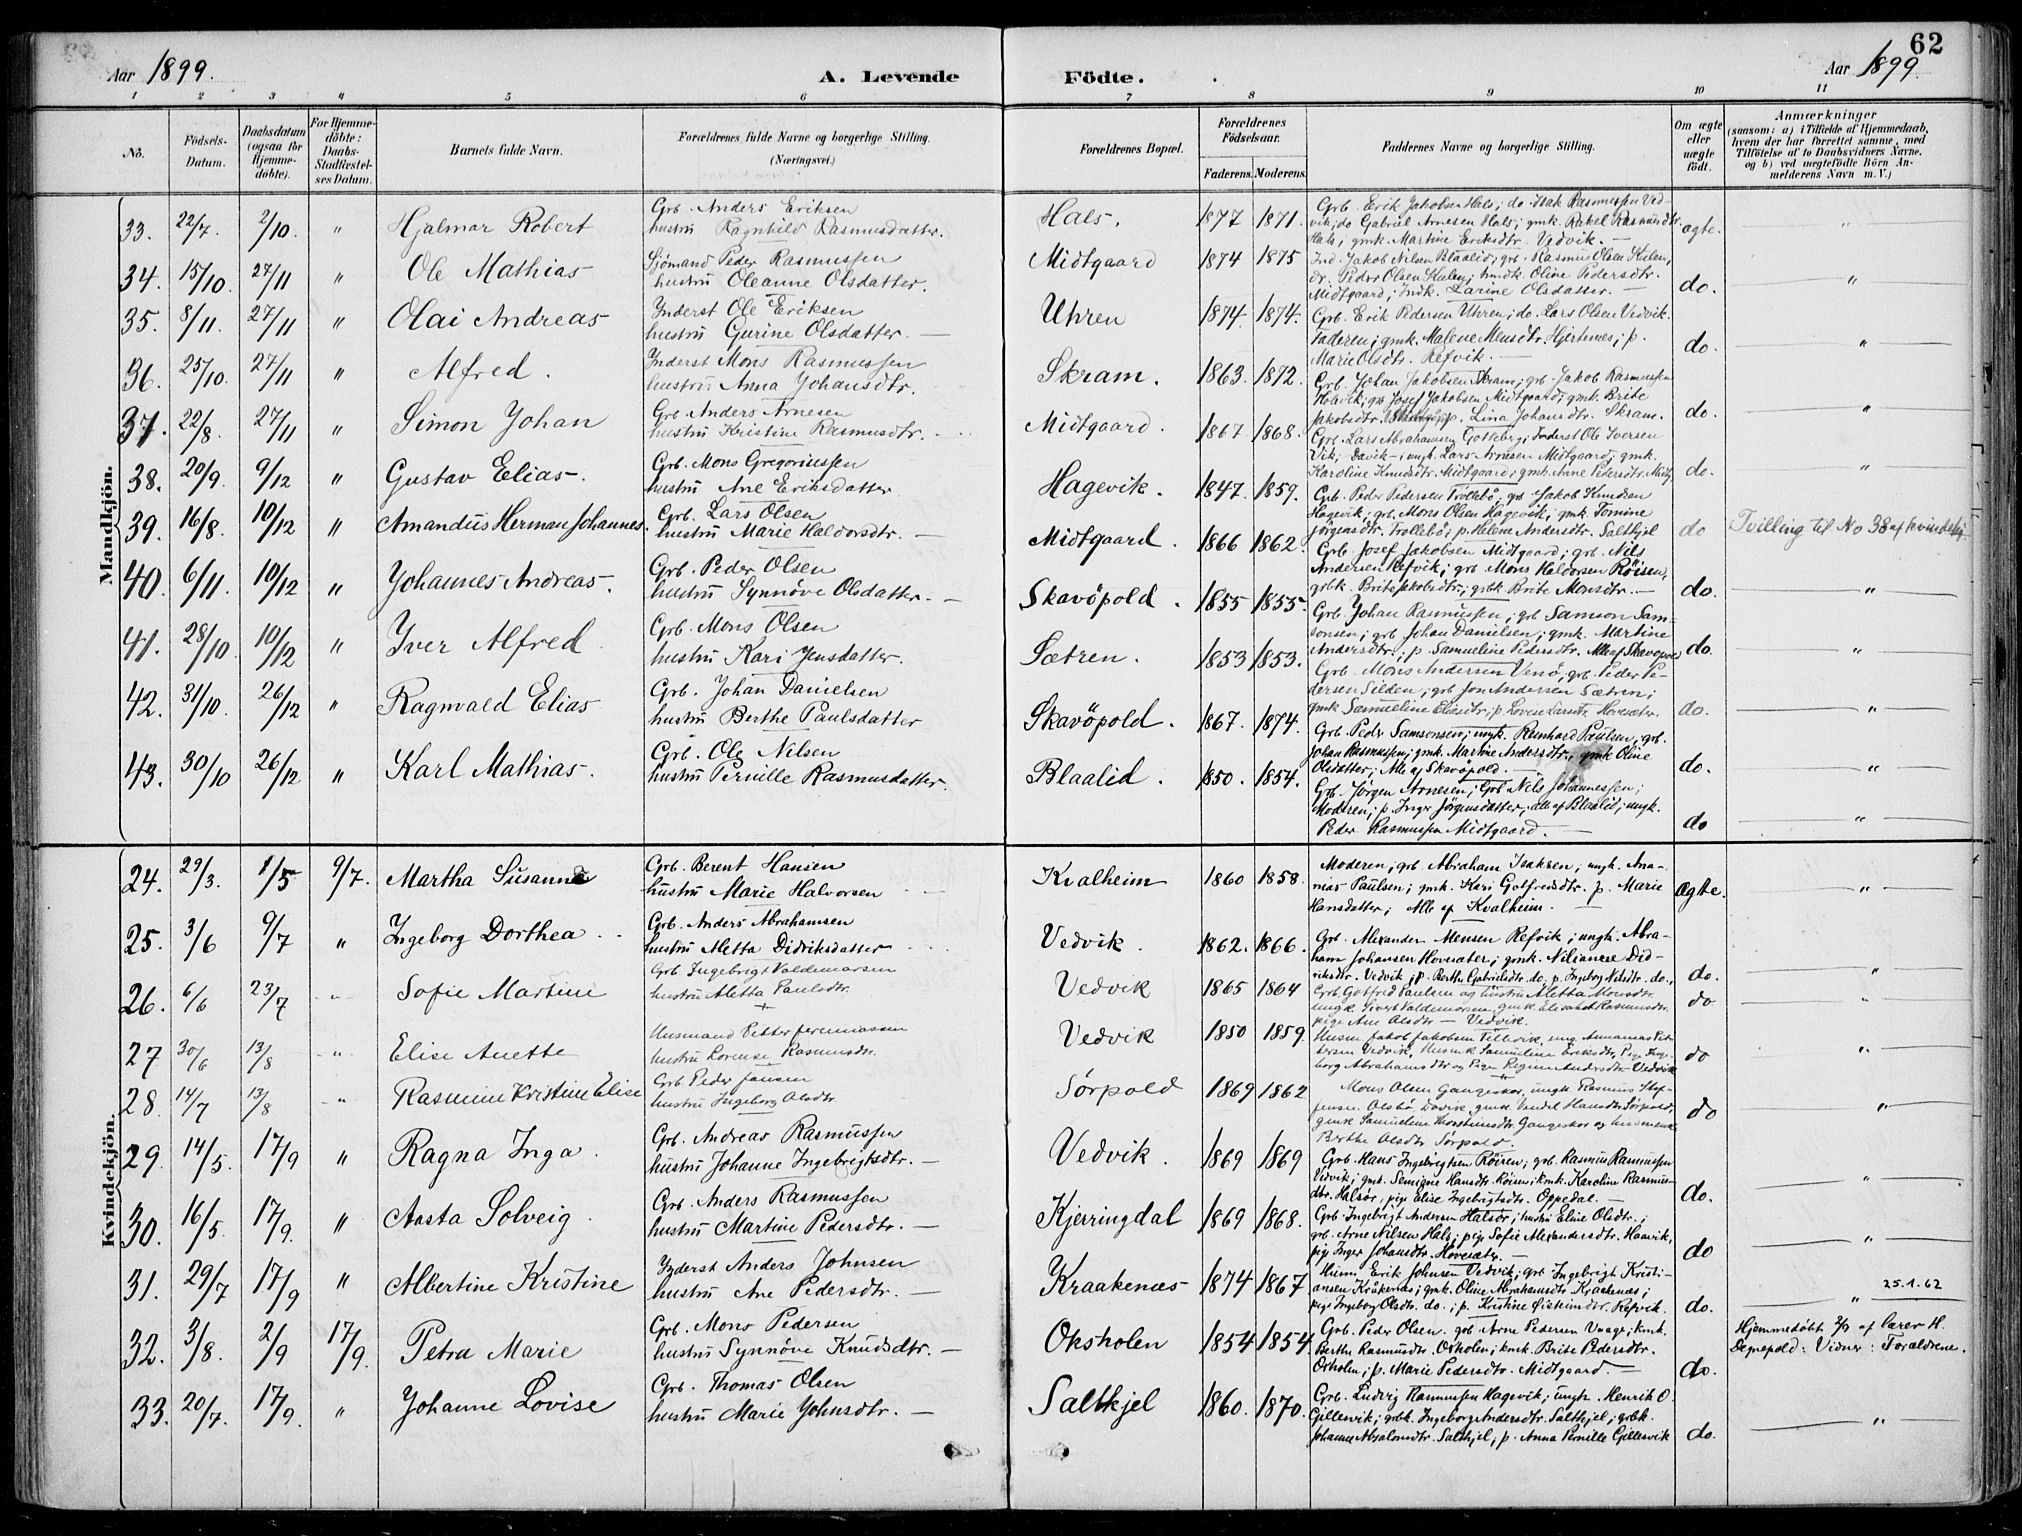 62
Aar 1899. A. Levende Födte. Aar 1899
1 2 3 4 5 6 7 8 9 10 11
No. Födsels-Datum. Daabsdatum (ogsaa for Hjemmedöbte). For Hjemmedöbte: Daabs-Stadfæstelses Datum. Barnets fulde Navn. Forældrenes fulde Navne og borgerlige Stilling. (Næringsvei.) Forældrenes Bopæl. Forældrenes Födselsaar. Faderens. Moderens. Faddernes Navne og borgerlige Stilling. Om ægte eller uægte födt. Anmærkninger (saasom: a) i Tilfælde af Hjemmedaab, hvem der har forrettet samme, med Tilföielse af to Daabsvidners Navne. og b) ved uægtefödte Börn Anmelderens Navn m. V.)
Mandkjön.
33. 22/7 2/10 " Hjalmar Robert Grb. Anders Eriksen hustru Ragnhild Rasmusdatter. Hals. 1877 1871. Grb. Erik Jakobsen Hals; do Isak Rasmussen Vedvik; do Gabriel Arnesen Hals; gmk. Rakel Rasmusdtr. Hals; gmk. Martine Eriksdtr. Vedvik. ægte. "
34. 15/10. 27/11 " Ole Mathias Sjömand Peder Rasmussen hustru Oleanne Olsdatter. Midtgaard 1874 1875 Ind. Jakob Nilsen Blaalid; grb. Rasmus Olsen; Peder Olsen; Oline Pedersdtr. Midtgaard; Indk. Larine Olsdatter. do. "
35. 8/11. 27/11 " Olai Andreas Inderst Ole Eriksen hustru Gurine Olsdatter. Uhren 1874. 1874. Grb. Erik Pedersen Uhren; do. Lars Olsen Vedvik. Faderen; gmk. Malene Mensdtr. Hjertenes; p. Marie Olsdtr. Refvik. do. "
36. 25/10. 27/11 " Alfred. Inderst Mons Rasmussen hustru Anna Johansdtr. Skram. 1863. 1872. Grb. Johan Jakobsen Skram; grb. Jakob Rasmussen; Josef Jakobsen Midtgaard; gmk. Brite Jakobsdtr. p. Lina Johansdtr. Skram. do. "
37. 22/8. 27/11 " Simon Johan Grb. Anders Arnesen hustru Kristine Rasmusdtr. Midtgaard. 1867 1868. Grb. Lars Abrahamsen Gotteberg; Inderst Ole Iversen Vik, Davik; ungk. Lars Arnesen Midtgaard; gmk. Karoline Knudsdtr. Midtgaard; gmk. Anne Pedersdtr. do. "
38. 20/9. 9/12 " Gustav Elias. Grb. Mons Gregoriussen hustru Ane Eriksdatter Hagevik. 1847. 1859. Grb. Peder Pedersen Trollebö, grb. Jakob Knudsen Hagevik; grb. Mons Olsen Hagevik; gmk. Tomine Jörgensdtr. Trollebö; p. Helene Andersdtr. Saltkjel do Tvilling til No 38 af kvindekj.
39. 16/8. 10/12 " Amandus Herman Johannes. Grb. Lars Olsen hustru Marie Haldorsdtr. Midtgaard. 1866 1862. Grb. Josef Jakobsen Midtgaard; grb. Nils Andersen Refvik; grb Mons Haldorsen Röisen, grbk. Brite Jakobsdtr.; grbk Brite Monsdtr. do. "
40. 6/11. 10/12 " Johannes Andreas. Grb. Peder Olsen hustru Synnöve Olsdatter. Skavöpold. 1855 1855. Grb. Johan Rasmussen; grb Samson Samsonsen; grb. Johan Danielsen; gmk. Martine Andersdtr.; p. Sameline Pedersdtr. Alle af Skavöpold do. "
41. 28/10. 10/12 " Iver Alfred Grb. Mons Olsen hustru Kari Jensdatter. Sætren. 1853 1853. Grb. Mons Andersen Venö; grb. Peder Pedersen Silden; grb Jon Andersen Sætren; gmk Sameline Eliasdtr; p. Lovise Larsdtr. Hovesæter. do. "
42. 31/10. 26/12 " Ragnvald Elias Grb. Johan Danielsen hustru Berthe Paulsdatter Skavöpold. 1867. 1874. Grb. Peder Samsonsen; ungk. Reinhard Paulsen; grb. Johan Rasmussen; gmk. Martine Andersdtr., gmk Oline Olsdatter; Alle af Skavöpold. do. "
43. 30/10 26/12 " Karl Mathias. Grb. Ole Nilsen hustru Pernille Rasmusdatter. Blaalid. 1850. 1854. Grb. Jörgen Arnesen; Grb Nils Johannessen; Moderen; p. Inger Jörgensdatter; alle af Blaalid; ungk. Peder Rasmussen Midtgaard. do "
Kvindekjön.
24. 29/3. 1/5 9/7. Martha Susanne Grb. Berent Hansen hustru Marie Halvorsen Kvalheim 1860 1858. Moderen; grb Abraham Isaksen; ungk. Ananias Paulsen; gmk. Kari Gotfredsdtr. p. Marie Hansdatter; Alle af Kvalheim. Ægte. "
25. 3/6 9/7 " Ingeborg Dorthea. Grb. Anders Abrahamsen hustru Aletta Didriksdatter Vedvik. 1862. 1866. Grb. Alexander Mensen Refvik; ungk. Abraham Johansen Hovesæter; gmk. Nilianese Didriksdtr. Vedvik; p. Berthe Gabrielsdtr. do; p. Ingeborg Nilsdtr. do. do. "
26. 6/6 23/7 " Sofie Martine Grb Ingebrigt Valdemarsen hustru Aletta Paulsdtr. Vedvik 1865 1864 Grb. Gotfred Paulsen og hustru Aletta Monsdtr. ungk. Sivert Valdemarsen, gmk. Elisabet Rasmusdtr. pige Ane Olsdtr — Vedvik. do "
27 30/6 13/8 " Elise Anette Husmand Petter Jeremiassen hustru Lorense Rasmusdtr. Vedvik 1850 1859. Husm Jakob Jakobsen, ung. Ananias Pettersen Vedvik, Husmk Sameline Eriksdtr, Pige Ingeborg Abrahamsdtr og Pige Regine Andersdtr Vedvik do "
28. 14/7 13/8 " Rasmine Kristine Elise Grb. Peder Jansen hustru Ingeborg Olsdtr. Sörpold 1869 1862 Mons Olsen Gangeskar, ungk. Rasmus Olsbö, Davik, gmk. Vendel Hansdtr Sörpold, gmk Sameline Thorstensdtr Gangeskar og Berthe Olsdtr Sörpold do "
29. 14/5. 17/9 " Ragna Inga. Grb. Andreas Rasmussen hustru Johanne Ingebrigtsdtr. Vedvik. 1869 1869 Grb. Hans Ingebrigtsen Röisen; grb. Rasmus Rasmussen Vedvik; gmk. Hansdtr. Röisen; kmk. Karoline Rasmusdtr. Halsör, pige Elise Ingebrigtsdtr. Oppedal. do. "
30. 16/5. 17/9. " Aasta Solveig. Grb. Anders Rasmussen hustru Martine Pedersdtr. Kjerringdal 1869 1868. Grb. Ingebrigt Andersen Halsör; hustru Eline Olsdtr.; grb. Arne Nilsen Hals; pige Sofie Alexandersdtr. Haavik; pige Inger Johansdtr. Hovesæter. do "
31. 29/7 17/9 " Albertine Kristine Inderst Anders Johnsen hustru Ane Pedersdtr. Kraakenæs 1874 1867 Husm. Erik Johnsen Vedvik; grb. Ingebrigt Kristiansen Kråkenæs; gmk. Oline Abrahamsdtr Kraakenæs; pige Ingeborg Olsdtr. do.; p. Kristine Refvik. do. " 25.1.62
32. 3/8. 2/9 17/9. Petra Marie Grb. Mons Pedersen hustru Synnöve Knudsdtr. Oksholen 1854 1854 Grb. Peder Olsen. grb Arne Pedersen Vaage; kmk. Berthe Rasmusdtr. Oksholen; kmk. Brite Pedersdtr. Oksholen; p. Marie Pedersdtr. Midtgaard do. Hjemmedöbt 2/9 af lærer H. Depepold: Vidner: Forældrene.
33. 20/7. 17/9. " Johanne Lovise Grb. Thomas Olsen hustru Marie Johnsdtr. Saltkjel 1860. 1870. Grb. Ludvig Rasmussen Hagevik; ungk. Henrik O. Gillesvik; grbk. Ingeborg Andersdtr. Saltkjel; grbk. Johanne Absalonsdtr. Saltkjel; p. Anna Pernille Gillesvik do. "